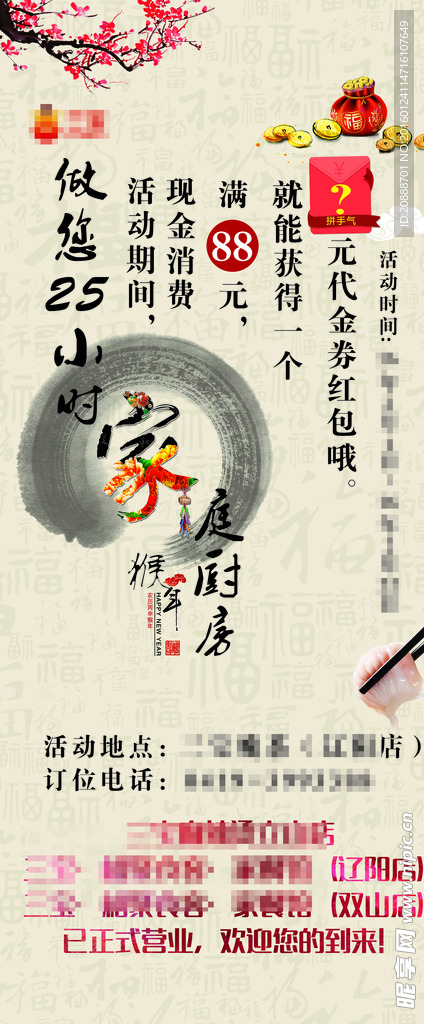 做您25小时
家庭厨房
活动期间，
现金消费
满88元，
就能获得一个
?
拼手气
元代金券红包哦。
活动时间:
猴年
农历丙申猴年
HAPPY NEW YEAR
活动地点：
店）
订位电话：
店
(辽阳店)
(双山店)
已正式营业，欢迎您的到来!
昵享网 www.nipic.cn
ID:20888701 NO:20160124114716107649